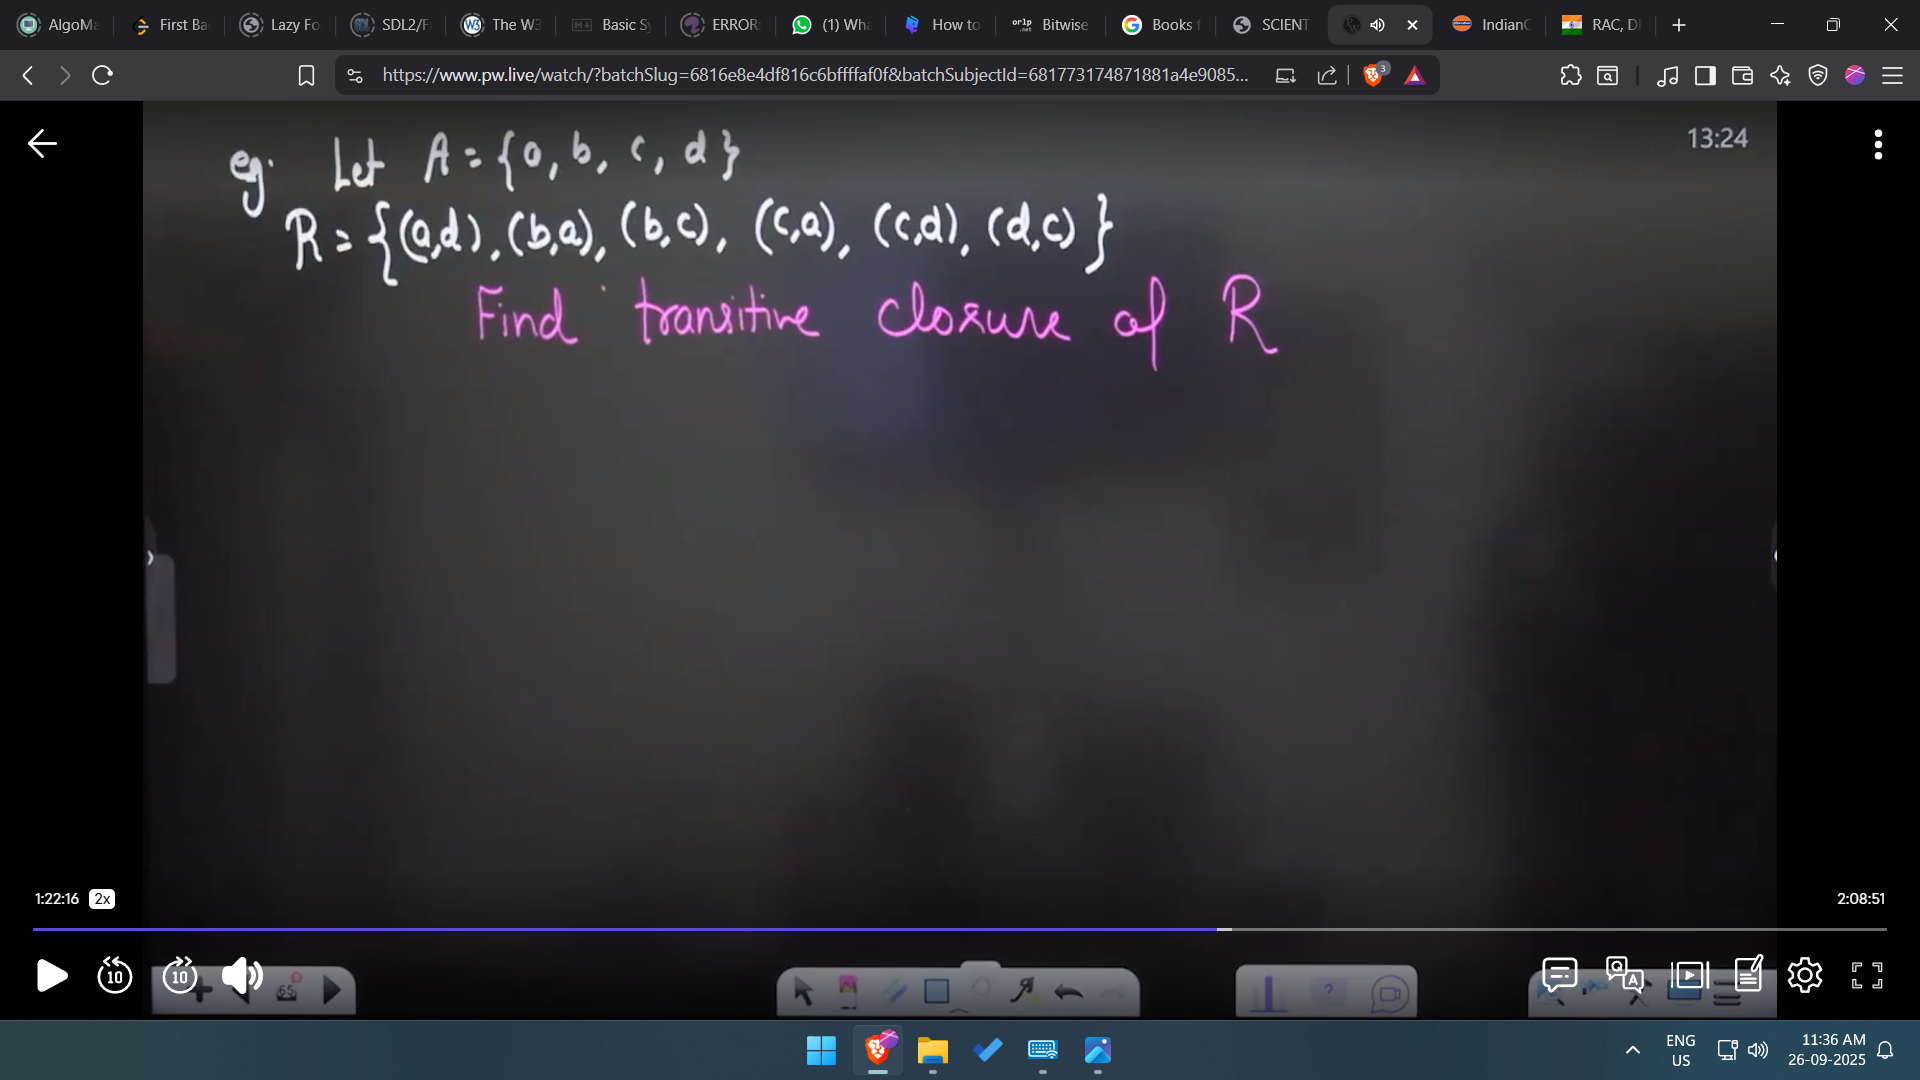 AlgoMa
First Ba
Lazy Fo
SDL2/F
The W3
Basic Sy
ERROR:
(1) Wha
How to
Bitwise
Books f
SCIENT
IndianC
RAC, D
https://www.pw.live/watch/?batchSlug=6816e8e4df816c6bffffaf0f&batchSubjectId=681773174871881a4e9085...
3
13:24
eg. Let A = {a, b, c, d}
R = {(a,d), (b,a), (b,c), (c,a), (c,d), (d,c)}
Find transitive closure of R
1:22:16 2x
2:08:51
10
10
65
ENG
US
11:36 AM
26-09-2025